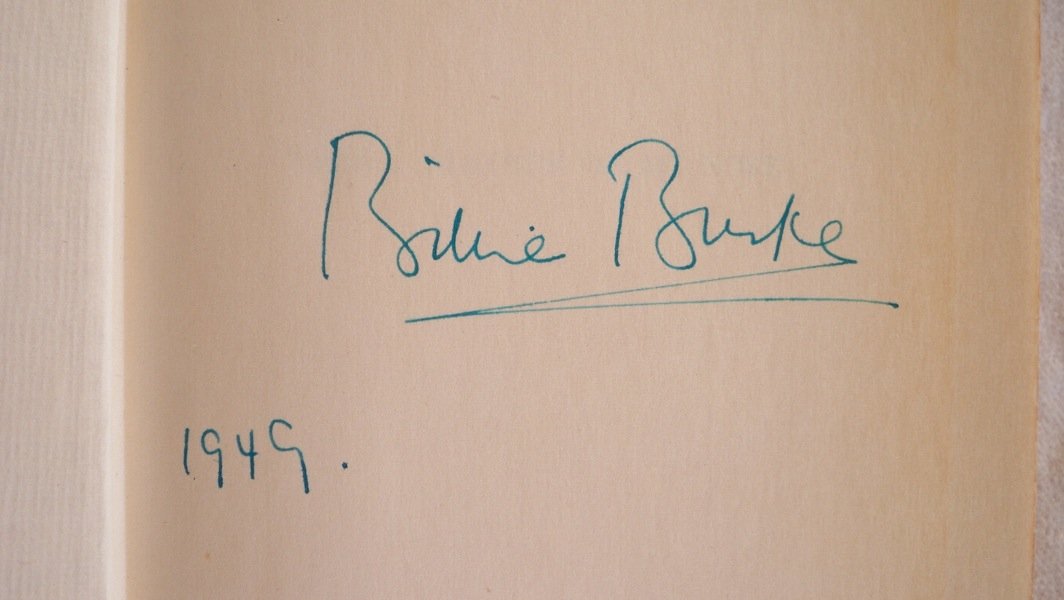 Billie Burke
1949.